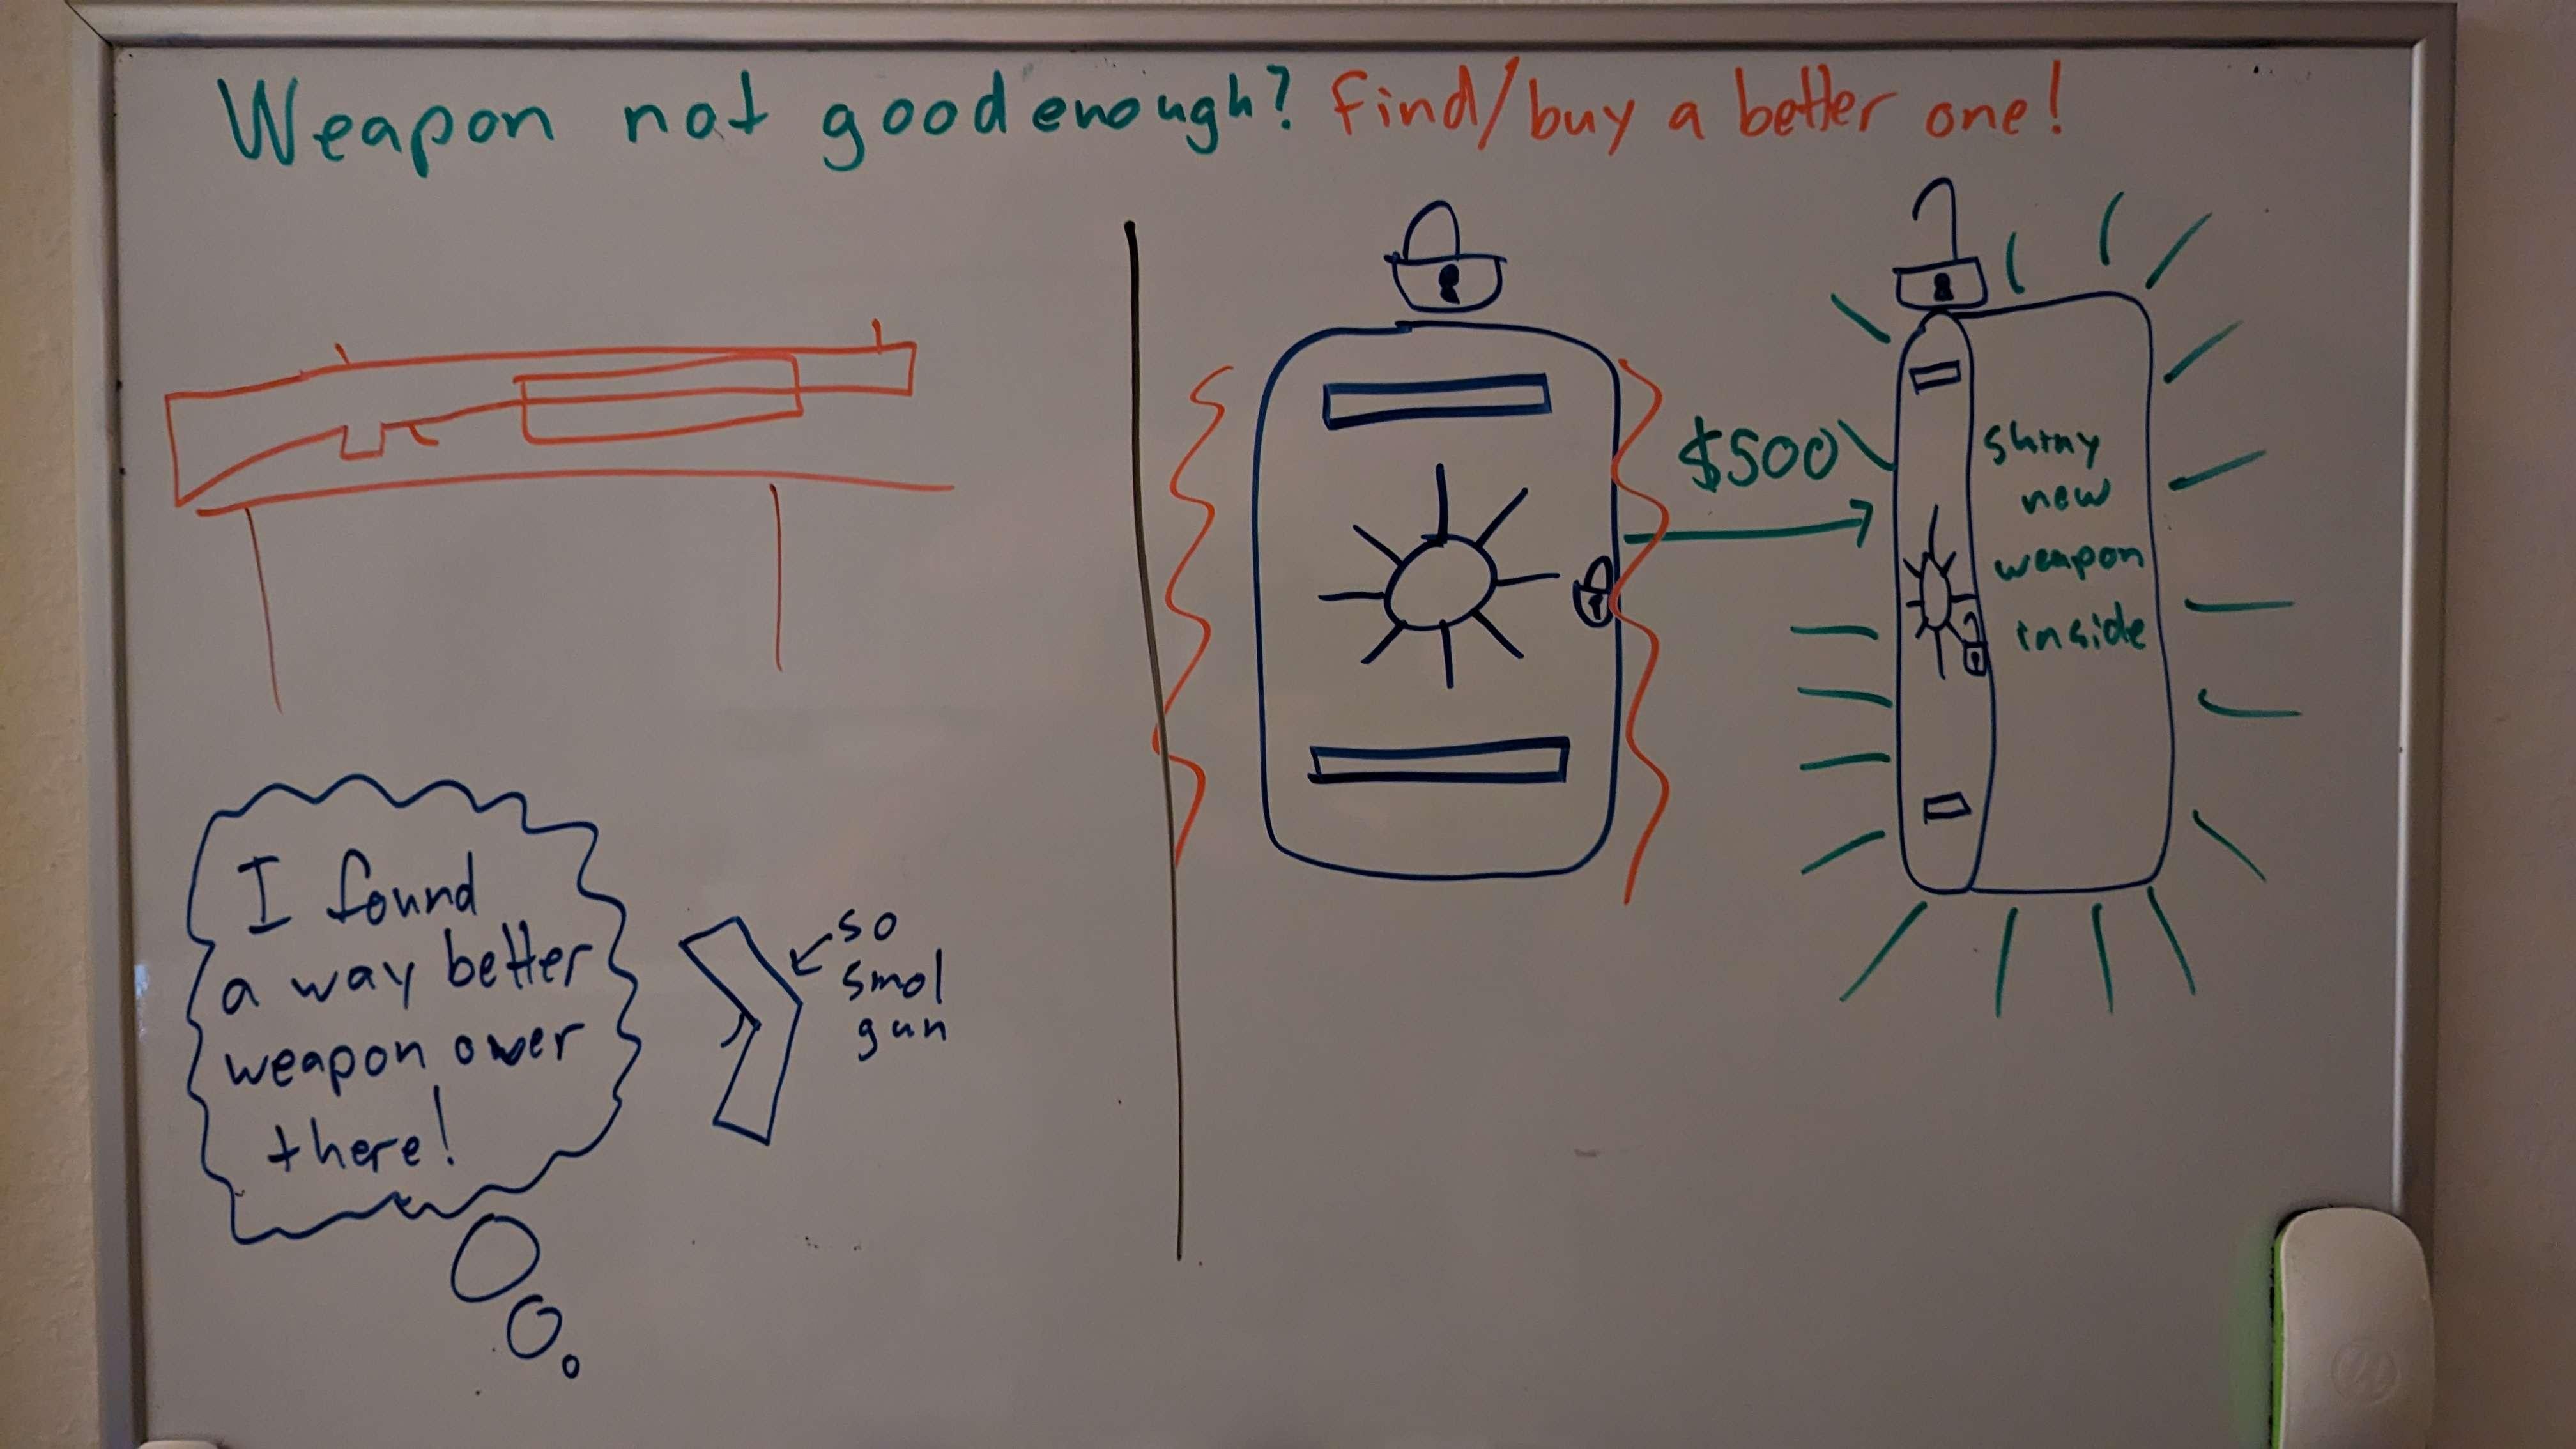 Weapon not good enough? find/buy a better one!
I found
a way better
weapon over
there!
so
smol
gun
$500
shiny
new
weapon
inside